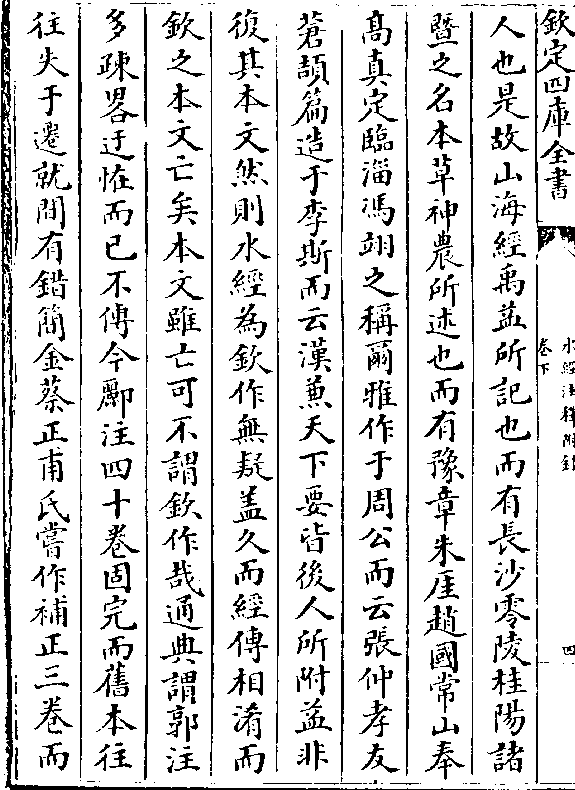 欽定四庫全書
水經注釋附錄
卷下
四
人也是故山海經禹益所記也而有長沙零陵桂陽諸
暨之名本草神農所述也而有豫章朱厓趙國常山奉
髙真定臨淄馮翊之稱爾雅作于周公而云張仲孝友
蒼頡篇造于李斯而云漢兼天下要皆後人所附益非
復其本文然則水經為欽作無疑盖久而經傳相淆而
欽之本文亡矣本文雖亡可不謂欽作哉通典謂郭注
多疎畧迂恠而已不傳今酈注四十卷固完而舊本往
往失于遷就間有錯簡金蔡正甫氏嘗作補正三卷而